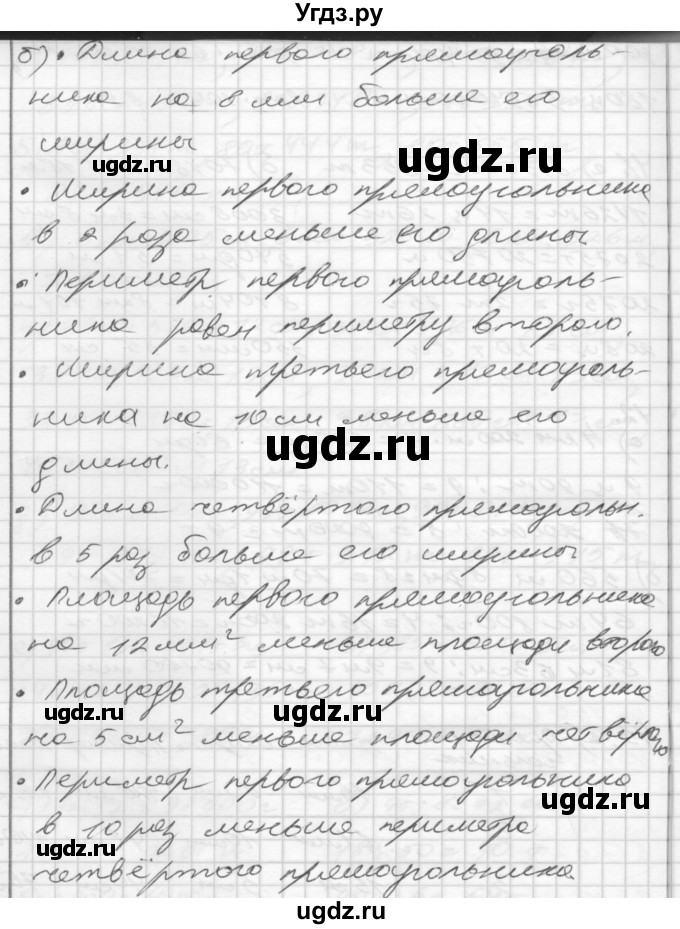 Угдз.ру
б) • Длина первого прямоуголь-
ника на 8 мм больше его
ширины
ugdz.ru
ugdz.ru
• Ширина первого прямоугольника
в 2 раза меньше его длины
• Периметр первого прямоуголь-
ника равен периметру второго.
• Ширина третьего прямоуголь-
ника на 10 см меньше его
ugdz.ru
длины.
• Длина четвёртого прямоугольн.
в 5 раз больше его ширины
• Площадь первого прямоугольника
на 12 мм² меньше площади второго
• Площадь третьего прямоугольника
ugdz.ru
ugdz.ru
на 5 см² меньше площади четвёртого
• Периметр первого прямоугольника
ugdz.ru
в 10 раз меньше периметра
четвёртого прямоугольника
ugdz.ru